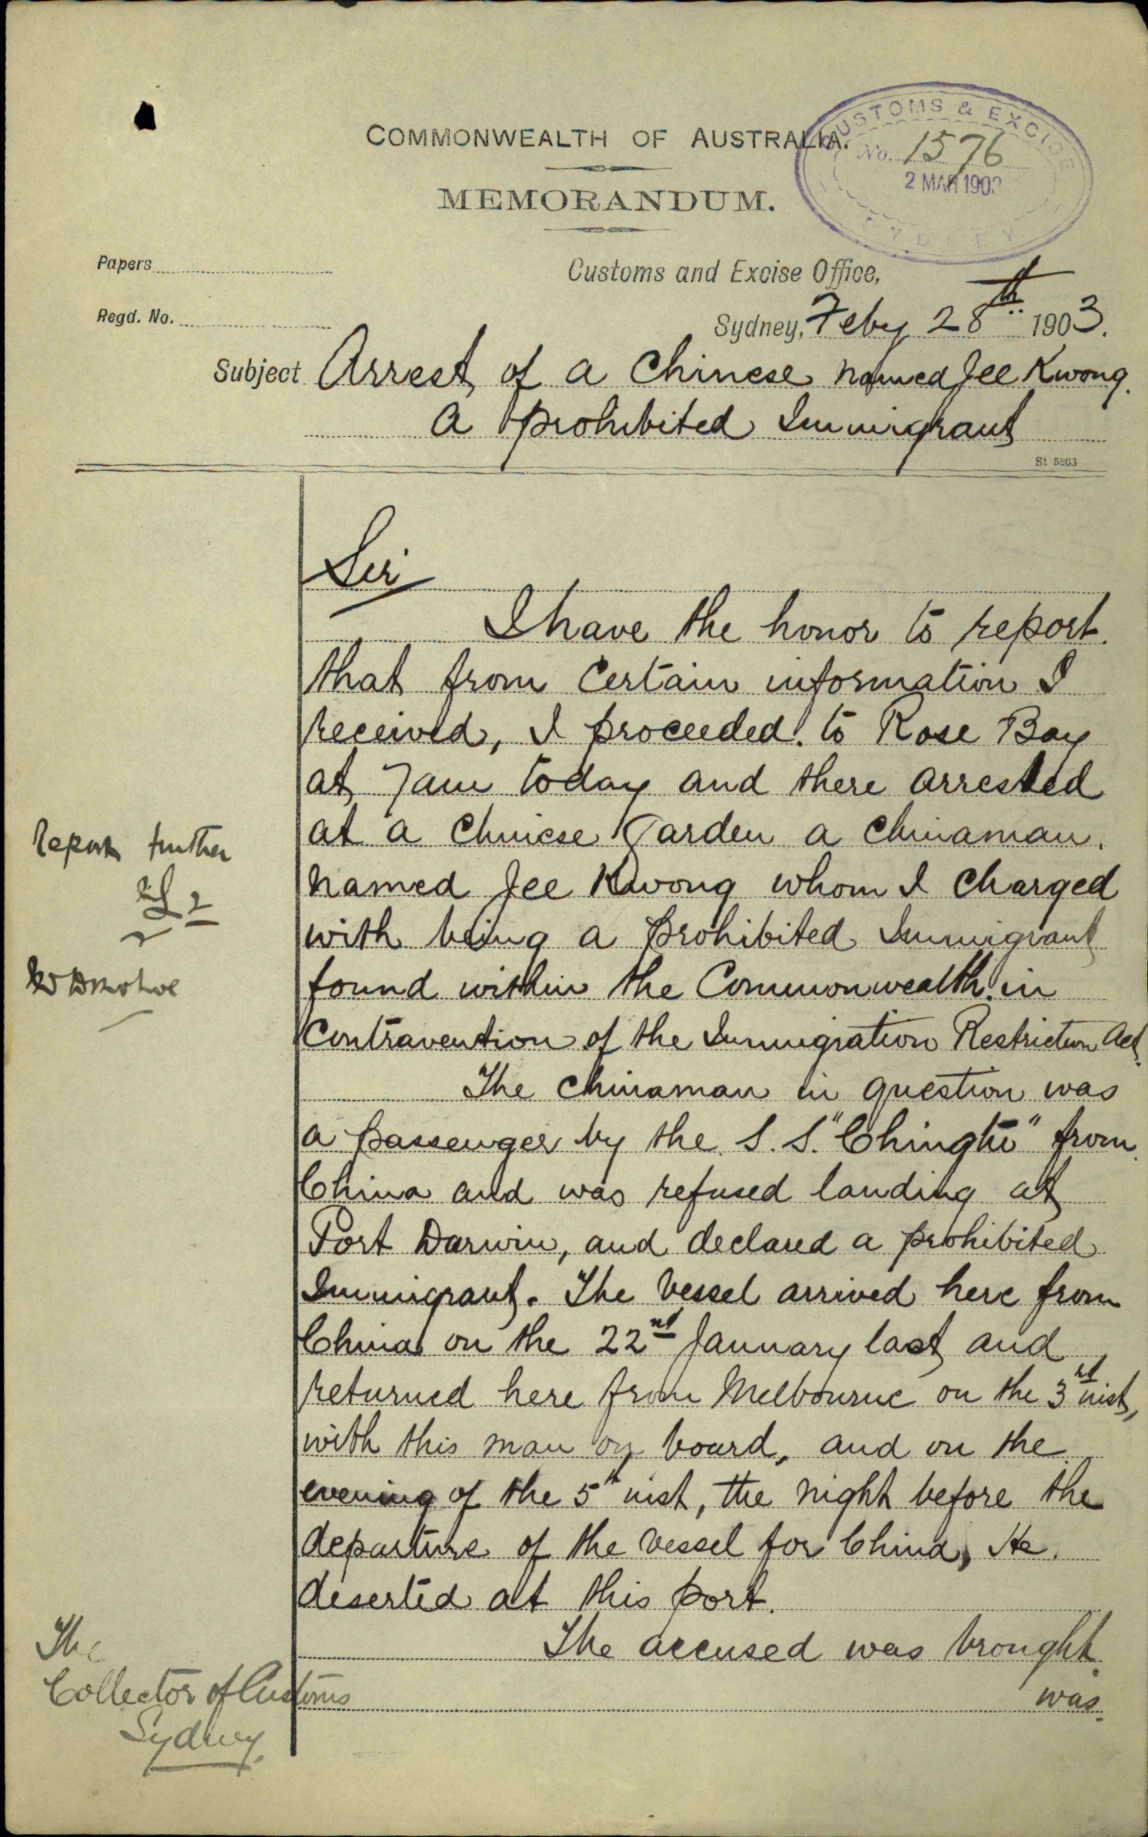 COMMONWEALTH OF AUSTRALIA.
CUSTOMS & EXCISE
No. 1576
2 MAR 1903
SYDNEY
MEMORANDUM.
Papers
Customs and Excise Office,
Regd. No.
Sydney, Feby 28th 1903.
Subject Arrest of a Chinese named Jee Kwong.
a prohibited Immigrant
St 5263
Sir
I have the honor to report.
that from certain information I
received, I proceeded to Rose Bay
at 7am today and there arrested
at a Chinese Garden a Chinaman.
named Jee Kwong whom I charged
with being a prohibited Immigrant
found within the Commonwealth in
contravention of the Immigration Restriction Act.
The Chinaman in question was
a passenger by the S.S. "Chingtu" from
China and was refused landing at
Port Darwin, and declared a prohibited
Immigrant. The Vessel arrived here from
China on the 22nd January last and
returned here from Melbourne on the 3rd inst,
with this man on board, and on the
evening of the 5th inst, the night before the
departure of the vessel for China, He
deserted at this port.
The accused was brought
was.
Report further
W Donohoe
The
Collector of Customs
Sydney.